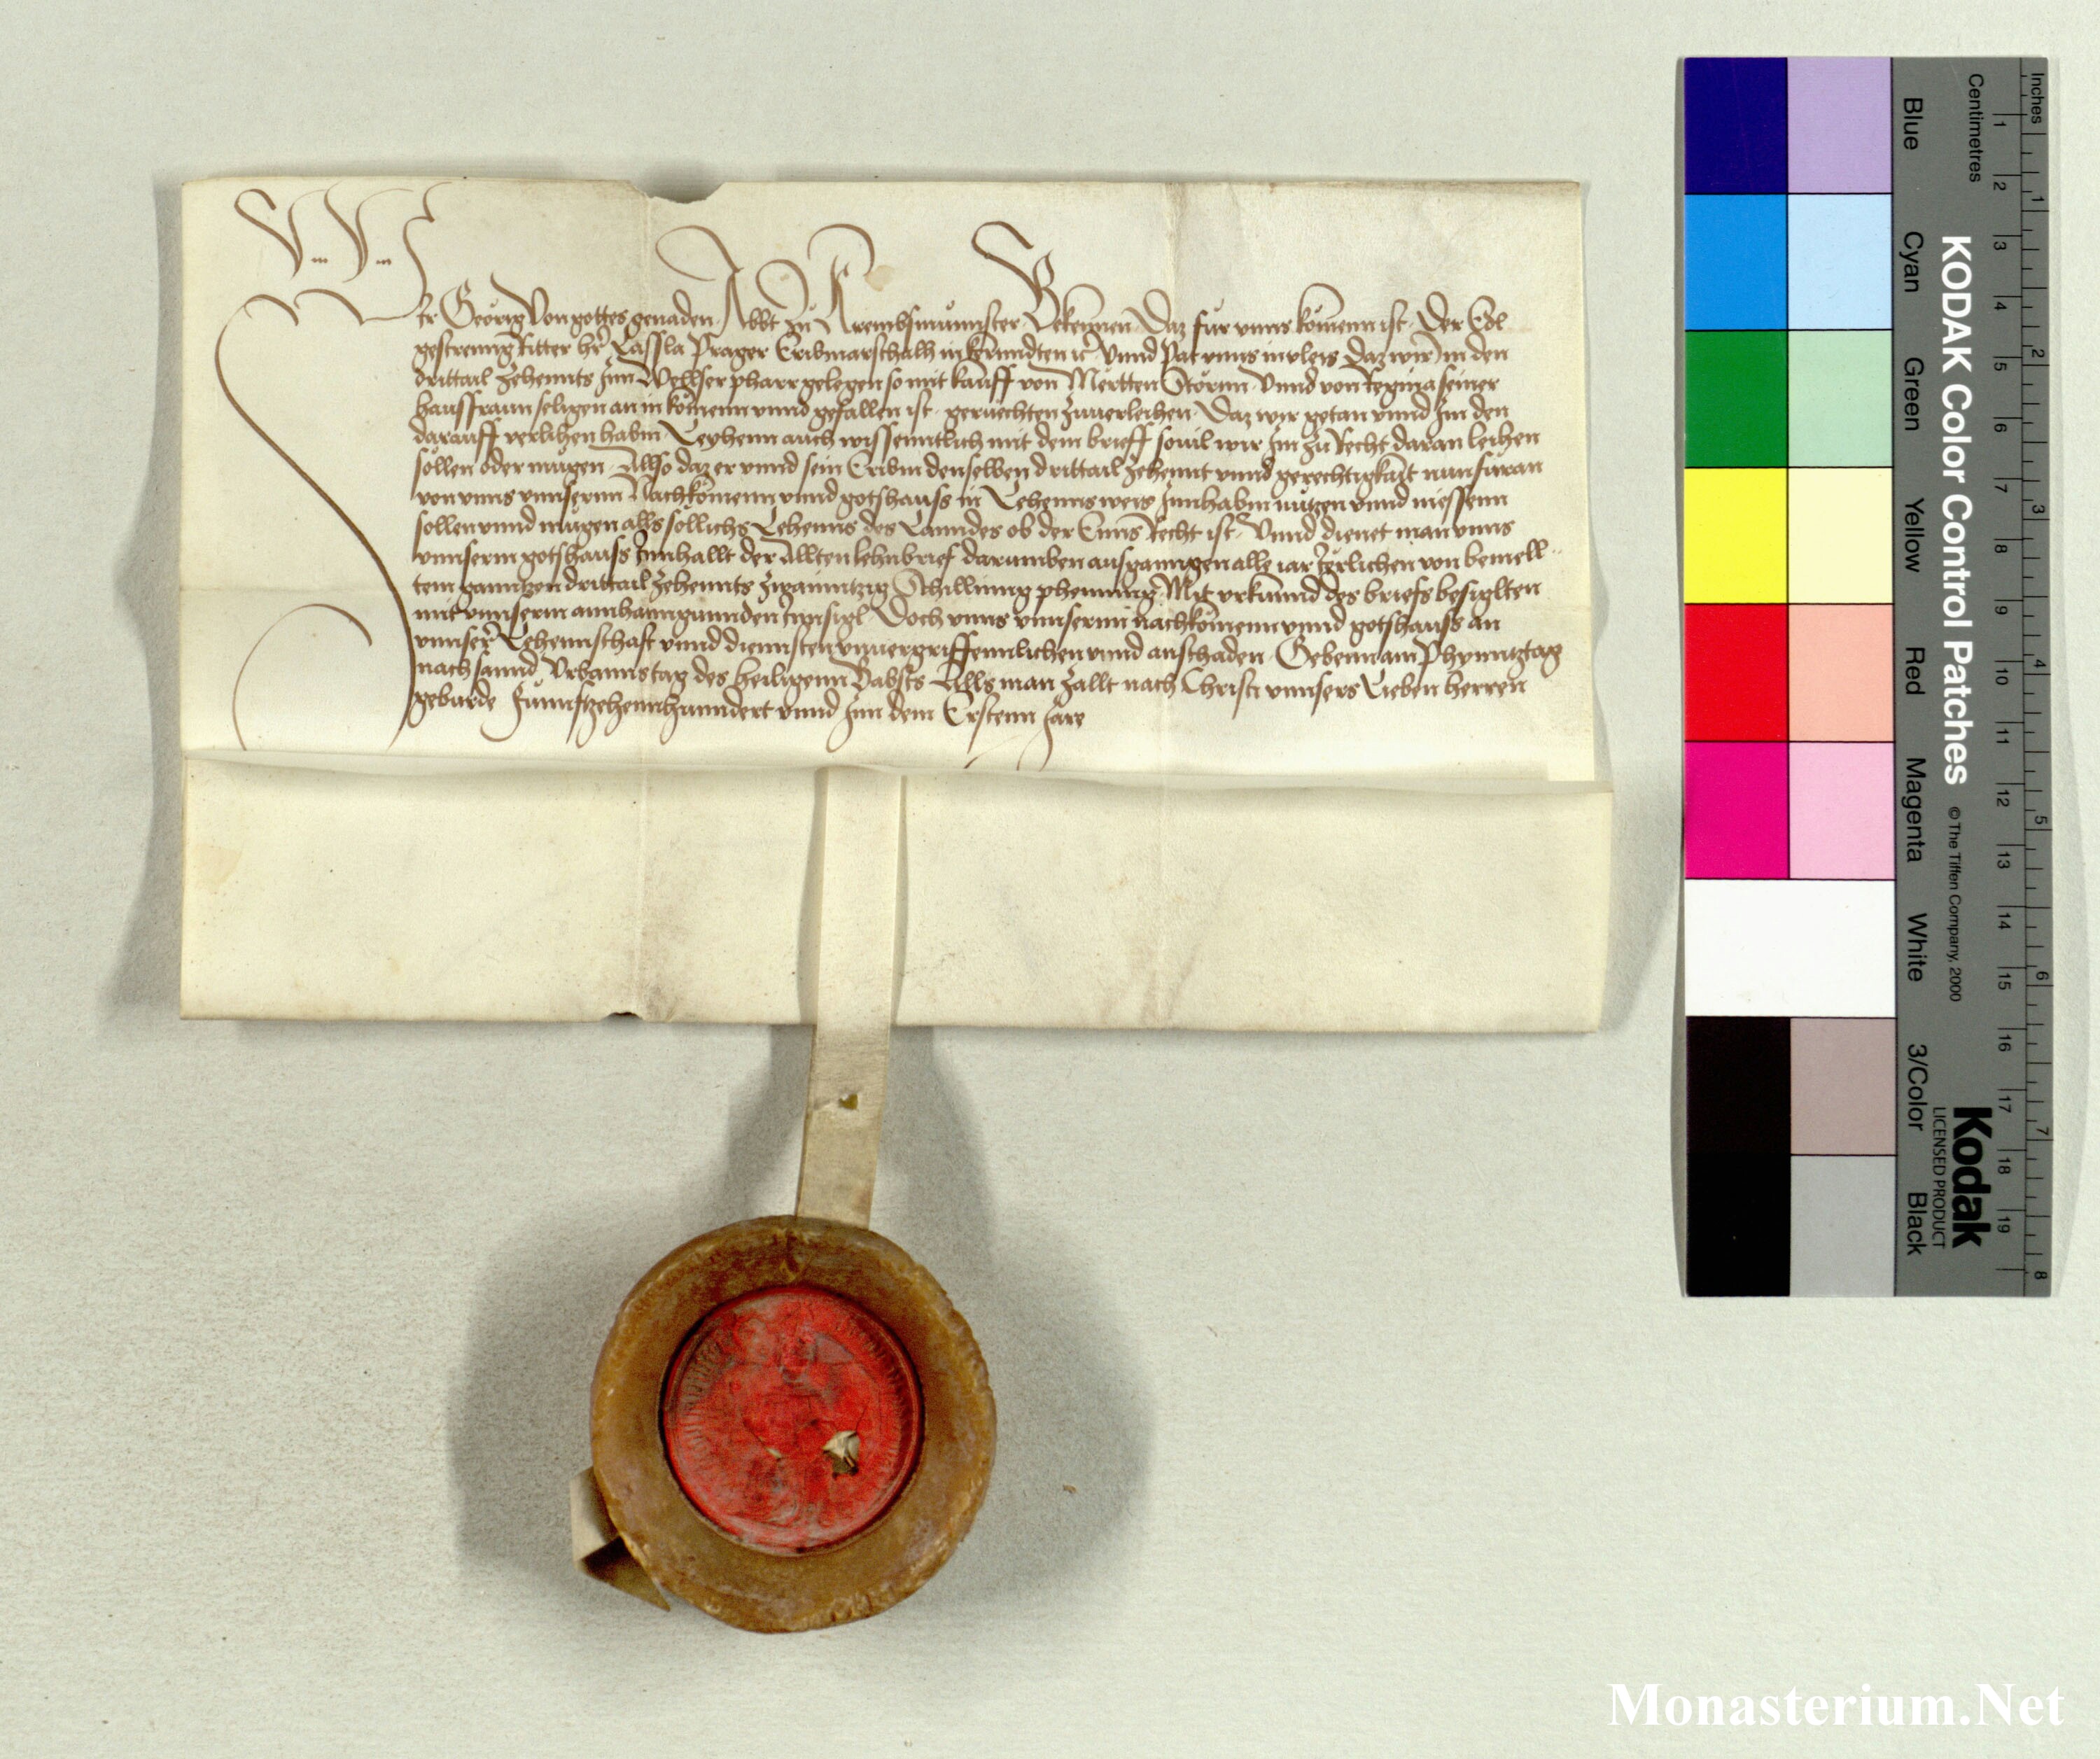 Wir Georig Von gottes genaden Abbt zu Krembsmunnster Bekennen Daz fur vnns komenn ist Der Edl
gestrenng Ritter her Lassla Prager Eribmarschalh in kernndten vnnd Pat vnns in vleis Daz wir in den
drittail Zehennts Inn Wellser pharr gelegen so mit kauff von Mertten Störnn Vnnd von Regina seiner
hausfraun seligen an in komenn vnnd gefallen ist geruechten zuuerleihen Daz wir getan vnnd Im den
darauff verlihen habm Leyhenn auch wissenntlich mit dem brieff souil wir Im zu Recht daran leihen
sollen oder mugen Also daz er vnnd sein Eribm denselben drittail Zehennt vnnd gerechtigkait nun furan
von vnns vnnsernn Nachkomenn vnnd gotshauss in Lehenns weis Innhabm nutzen vnnd niessenn
sollen vnnd mugen alls sollichs Lehenns des Lanndes ob der Enns Recht ist Vnnd dienet man vnns
vnnserm gotshauss Innhallt der Allten lehnbrief darumben ausganngen alle iar Ierlichen von bemell
tem ganntzen drittail Zehennts Zwainntzig Schillinng phenning Mit vrkunnd des briefs besiglten
mit vnnserm annhanngunnden Innsigl Doch vnns vnnsernn nachkomenn vnnd gotshauss an
vnnser Lehennschaft vnnd diennsten vnuergriffennlichen vnnd an schaden Gebenn am Phynntztag
nach sannd Vrbannstag des heiligenn Babsts Alls man Zallt nach Christi vnnsers Lieben herren
geburde Funnftzehennhunndert vnnd Inn dem Erstenn Jare
Inches 1 2 3 4 5 6 7 8
Centimetres 1 2 3 4 5 6 7 8 9 10 11 12 13 14 15 16 17 18 19
KODAK Color Control Patches © The Tiffen Company, 2000 Kodak
LICENSED PRODUCT
Blue Cyan Green Yellow Red Magenta White 3/Color Black
Monasterium.Net